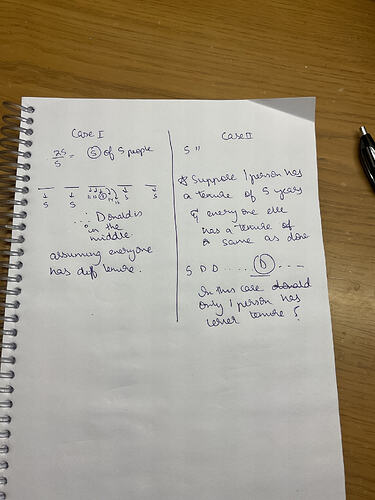 Case I
25/5 = 5 of 5 people
5 5 5 5
.... Donald is
in the
middle.
assuming everyone
has diff tenure.
Case II
5 "
Suppose 1 person has
a tenure of 5 years
& everyone else
has a tenure of
same as done
5 D D .... D ....
In this case donald
only 1 person has
lesser tenure?